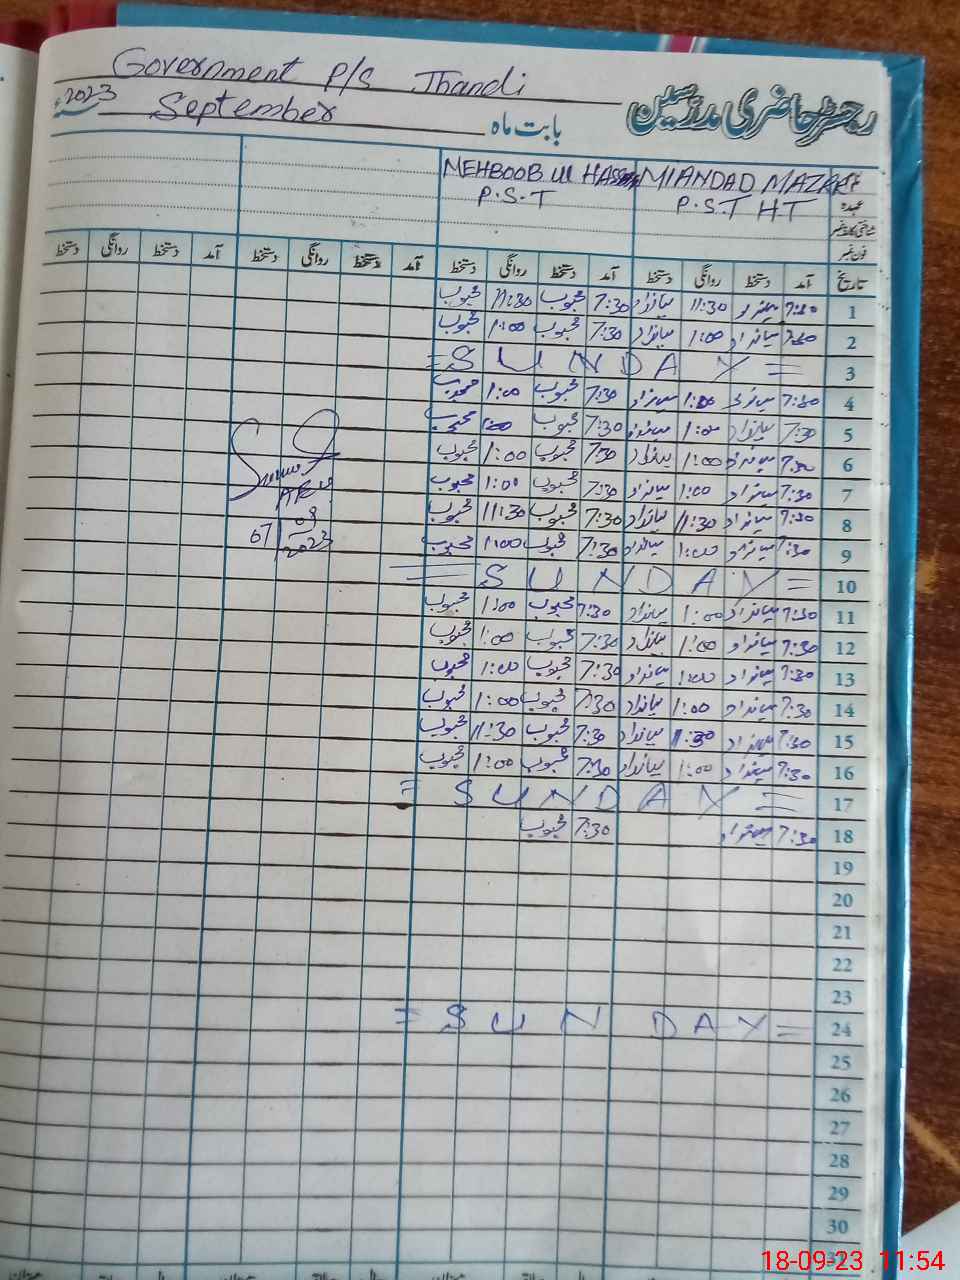 Government P/S Jhandi
رجسٹر حاضری مدرسین
2023ء September بابت ماہ
MIANDAD MAZARI MEHBOOB Ul HASSAN
عہدہ P.S.T H.T P.S.T
فون نمبر
تاریخ آمد دستخط روانگی دستخط آمد دستخط روانگی دستخط آمد دستخط روانگی دستخط آمد دستخط روانگی دستخط
1 7:30 11:30 میانداد 7:30 محبوب 11:30 محبوب
2 7:30 میانداد 1:00 میانداد 7:30 محبوب 1:00 محبوب
3 = SUNDAY =
4 7:30 میانداد 1:00 میانداد 7:30 محبوب 1:00 محبوب
5 7:30 میانداد 1:00 میانداد 7:30 محبوب 1:00 محبوب
6 7:30 میانداد 1:00 میانداد 7:30 محبوب 1:00 محبوب
7 7:30 میانداد 1:00 میانداد 7:30 محبوب 1:00 محبوب
8 7:30 میانداد 11:30 میانداد 7:30 محبوب 11:30 محبوب
07 09 2023
9 7:30 میانداد 1:00 میانداد 7:30 محبوب 1:00 محبوب
10 = SUNDAY =
11 7:30 میانداد 1:00 میانداد 7:30 محبوب 1:00 محبوب
12 7:30 میانداد 1:00 میانداد 7:30 محبوب 1:00 محبوب
13 7:30 میانداد 1:00 میانداد 7:30 محبوب 1:00 محبوب
14 7:30 میانداد 1:00 میانداد 7:30 محبوب 1:00 محبوب
15 7:30 میانداد 11:30 میانداد 7:30 محبوب 11:30 محبوب
16 7:30 میانداد 1:00 میانداد 7:30 محبوب 1:00 محبوب
17 = SUNDAY =
18 7:30 میانداد 7:30 محبوب
19
20
21
22
23
24 = SUNDAY =
25
26
27
28
29
30
31
18-09-23 11:54